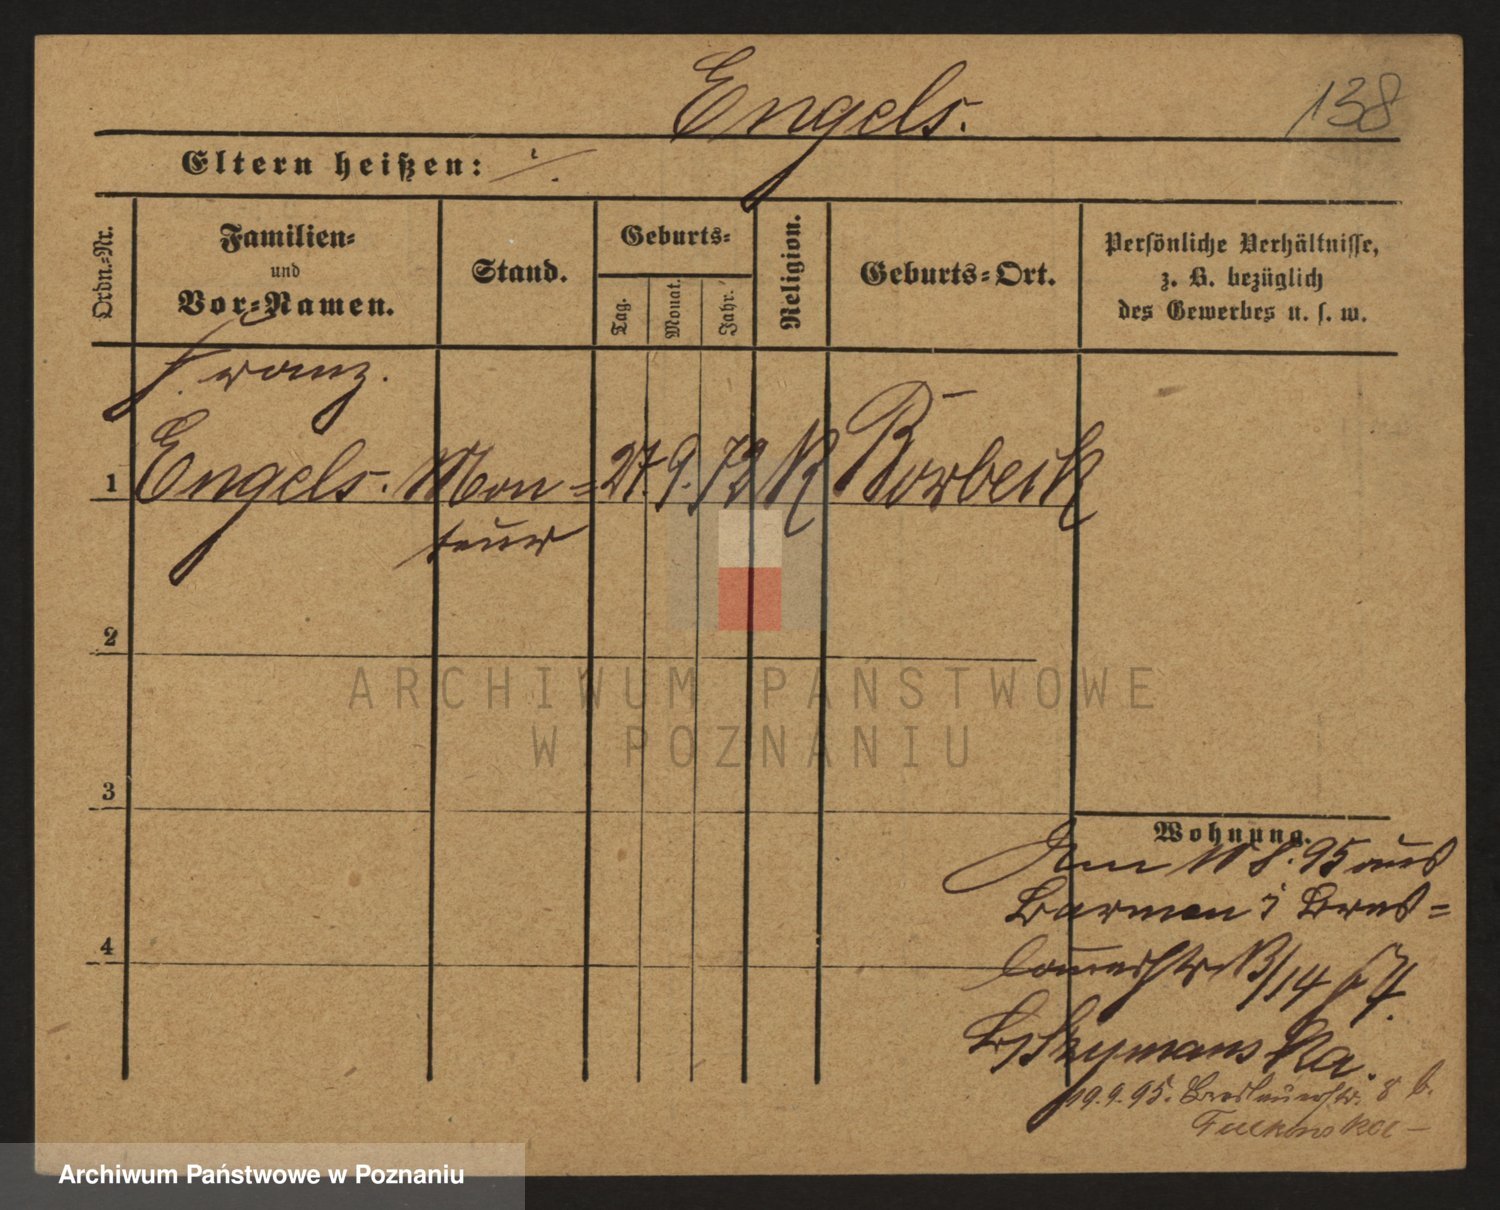 Engels.
138
Eltern heißen: ./.
Ordn.=Nr.
Familien=
und
Vor=Namen.
Stand.
Geburts=
Tag.
Monat.
Jahr.
Religion.
Geburts=Ort.
Persönliche Verhältnisse,
z. B. bezüglich
des Gewerbes u. s. w.
Franz.
1 Engels. Mon= 27. 9. 72 K Borbeck
teur
2
3
4
Wohnung.
Am 10 8. 95 aus
Barmen i Bres=
lauerstr N 3/14
B/ Szymanska.
19.9.95. Breslauerstr. 8 b.
ARCHIWUM PAŃSTWOWE
W POZNANIU
Archiwum Państwowe w Poznaniu